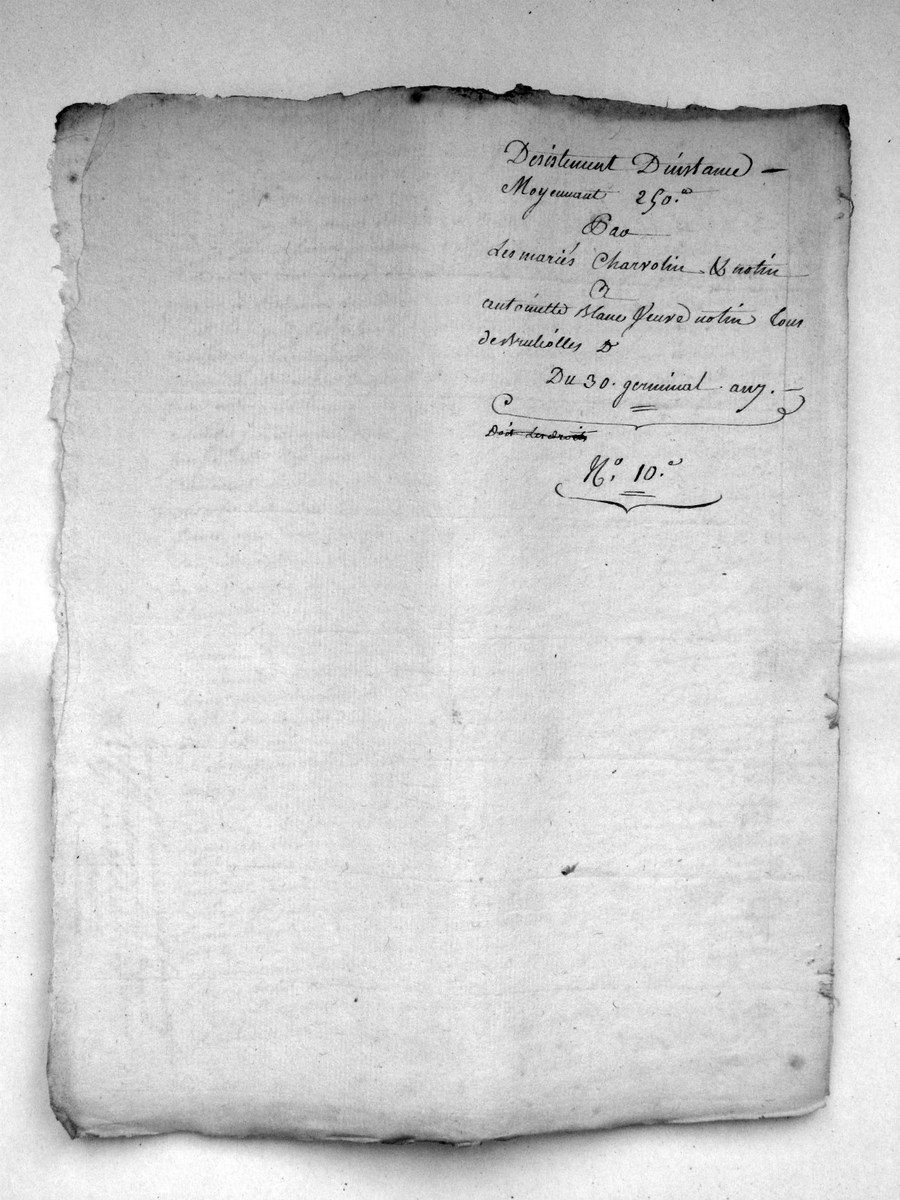 Desistement D'instance -
Moyennant 250.#
Par
Les mariés Charvolin & notin
Et
antoinette Blanc Veuve notin tous
de Brulliolles D
Du 30. germinal. an 7. -
Doit les droits
N.º 10.e